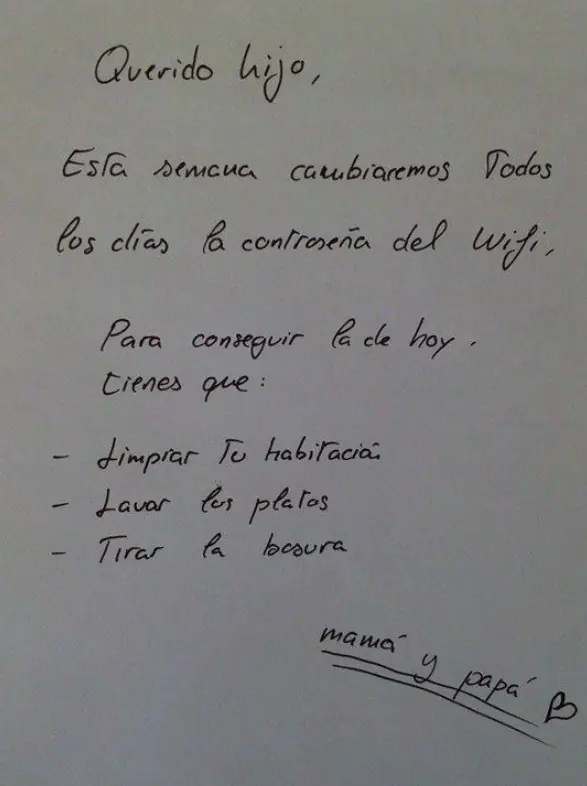 Querido hijo,
Esta semana cambiaremos Todos
los días la contraseña del Wifi,
Para conseguir la de hoy.
tienes que:
- Limpiar Tu habitación
- Lavar los platos
- Tirar la basura
mamá y papá